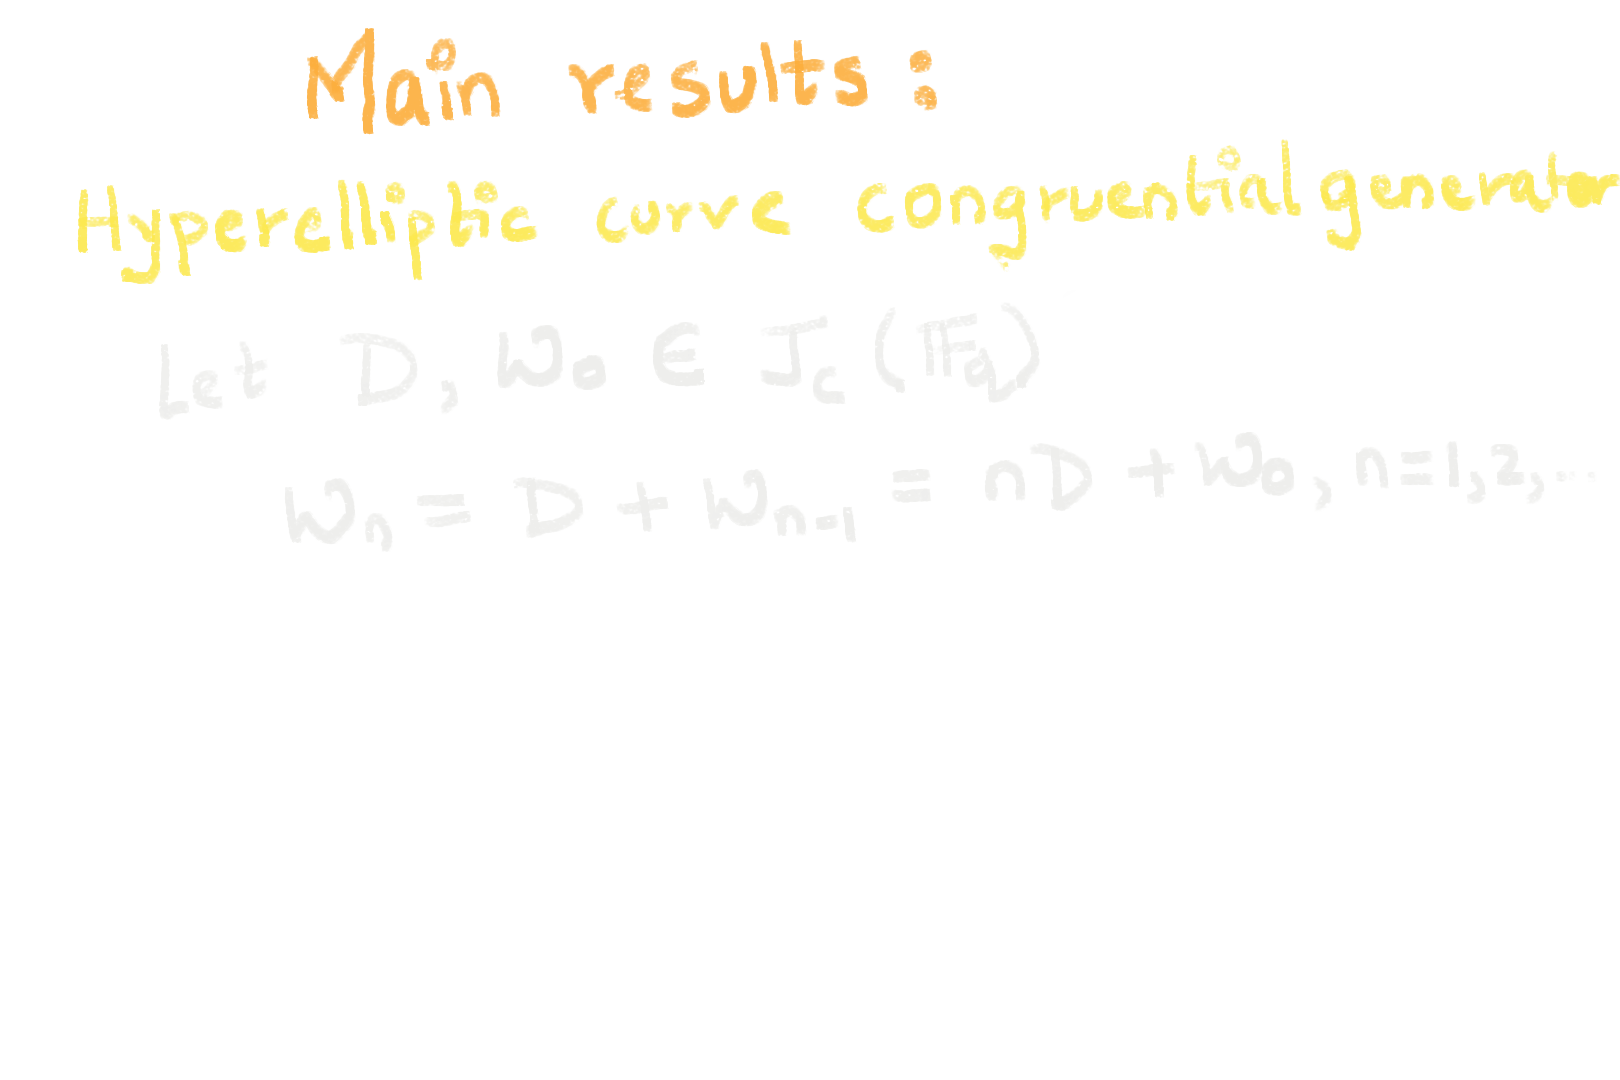 Main results:
Hyperelliptic curve congruential generator
Let D, W₀ ∈ J_C(𝔽_q)
Wₙ = D + Wₙ₋₁ = nD + W₀, n=1,2,...